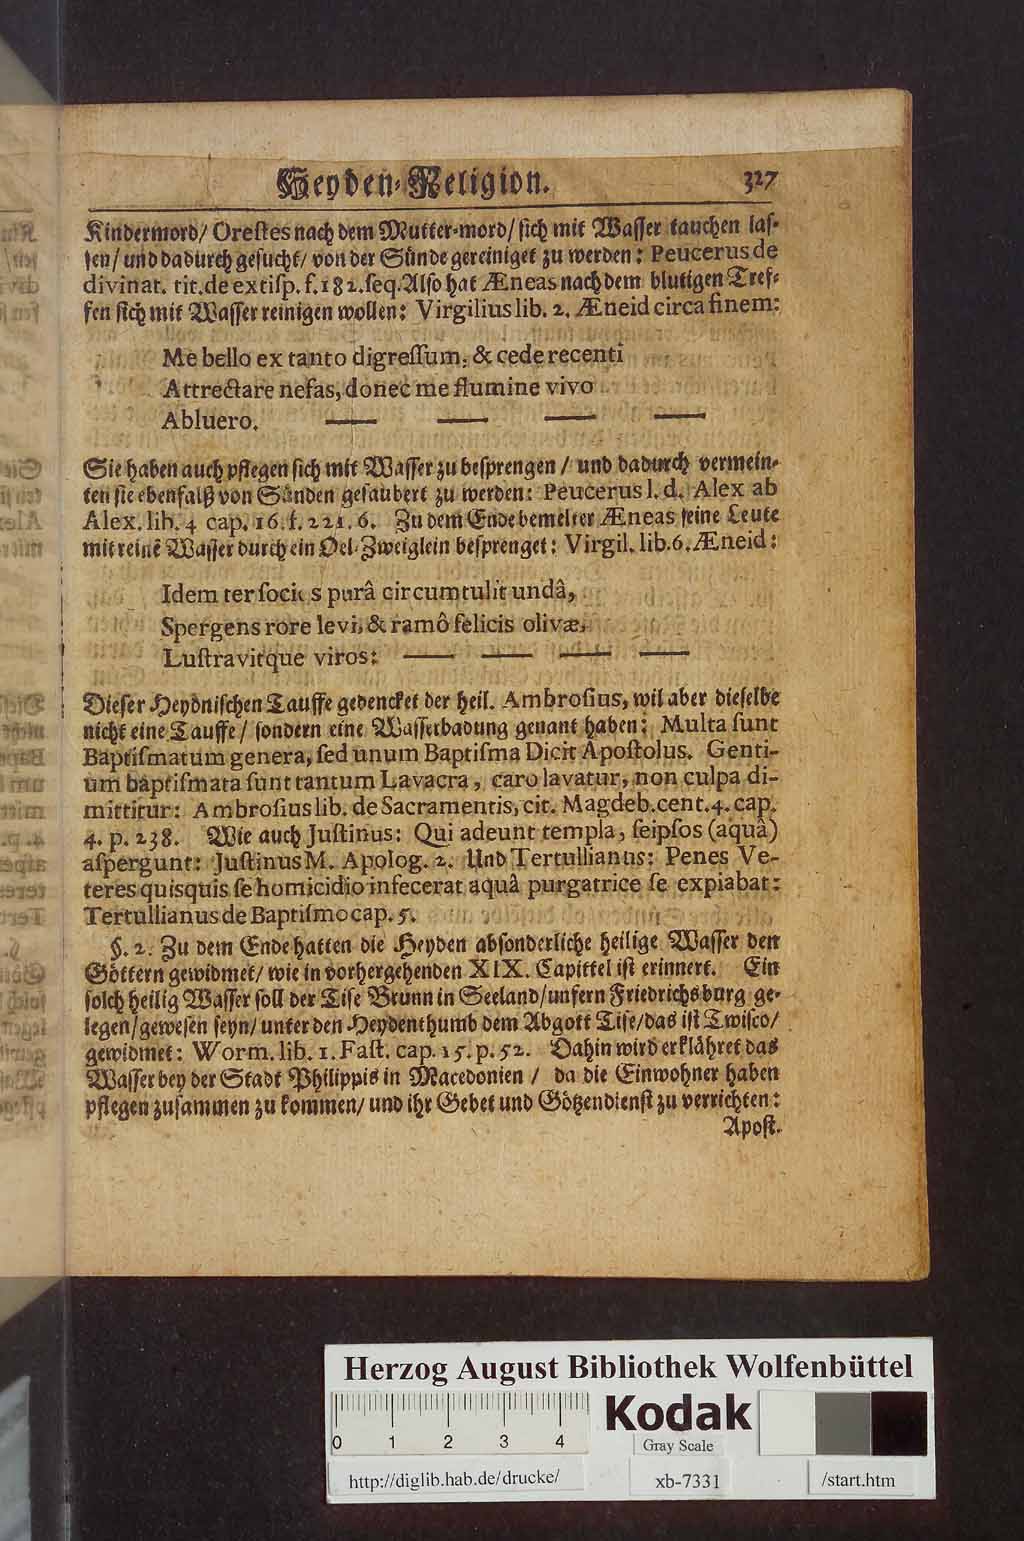 Heyden-Religion. 327
Kindermord/ Orestes nach dem Mutter-mord/ sich mit Wasser tauchen las-
sen/ und dadurch gesucht/ von der Sünde gereiniget zu werden: Peucerus de
divinat. tit. de extisp. f. 182. seq. Also hat Æneas nach dem blutigen Tref-
fen sich mit Wasser reinigen wollen: Virgilius lib. 2. Æneid circa finem:
Me bello ex tanto digressum, & cede recenti
Attrectare nefas, donec me flumine vivo
Abluero. — — — —
Sie haben auch pflegen sich mit Wasser zu besprengen / und dadurch vermein-
ten sie ebenfalß von Sünden gesaubert zu werden: Peucerus l. d. Alex ab
Alex. lib. 4 cap. 16. f. 221. 6. Zu dem Ende bemelter Æneas seine Leute
mit reinē Wasser durch ein Oel-Zweiglein besprenget: Virgil. lib. 6. Æneid:
Idem ter socios purâ circumtulit undâ,
Spergens rore levi, & ramô felicis olivæ,
Lustravitque viros: — — — —
Dieser Heydnischen Tauffe gedencket der heil. Ambrosius, wil aber dieselbe
nicht eine Tauffe/ sondern eine Wasserbadung genant haben: Multa sunt
Baptismatum genera, sed unum Baptisma Dicit Apostolus. Genti-
um baptismata sunt tantum Lavacra, caro lavatur, non culpa di-
mittitur: Ambrosius lib. de Sacramentis, cit. Magdeb. cent. 4. cap.
4. p. 238. Wie auch Justinus: Qui adeunt templa, seipsos (aquâ)
aspergunt: Justinus M. Apolog. 2. Und Tertullianus: Penes Ve-
teres quisquis se homicidio infecerat aquâ purgatrice se expiabat:
Tertullianus de Baptismo cap. 5.
§. 2. Zu dem Ende hatten die Heyden absonderliche heilige Wasser den
Göttern gewidmet/ wie in vorhergehenden XIX. Capittel ist erinnert. Ein
solch heilig Wasser soll der Tise Brunn in Seeland/ unfern Friedrichsburg ge-
legen/ gewesen seyn/ unter den Heydenthumb dem Abgott Tise/ das ist Twisco/
gewidmet: Worm. lib. 1. Fast. cap. 15. p. 52. Dahin wird erklähret das
Wasser bey der Stadt Philippis in Macedonien / da die Einwohner haben
pflegen zusammen zu kommen/ und ihr Gebet und Götzendienst zu verrichten:
Apost.
Herzog August Bibliothek Wolfenbüttel
0 1 2 3 4
Kodak
Gray Scale
http://diglib.hab.de/drucke/ xb-7331 /start.htm